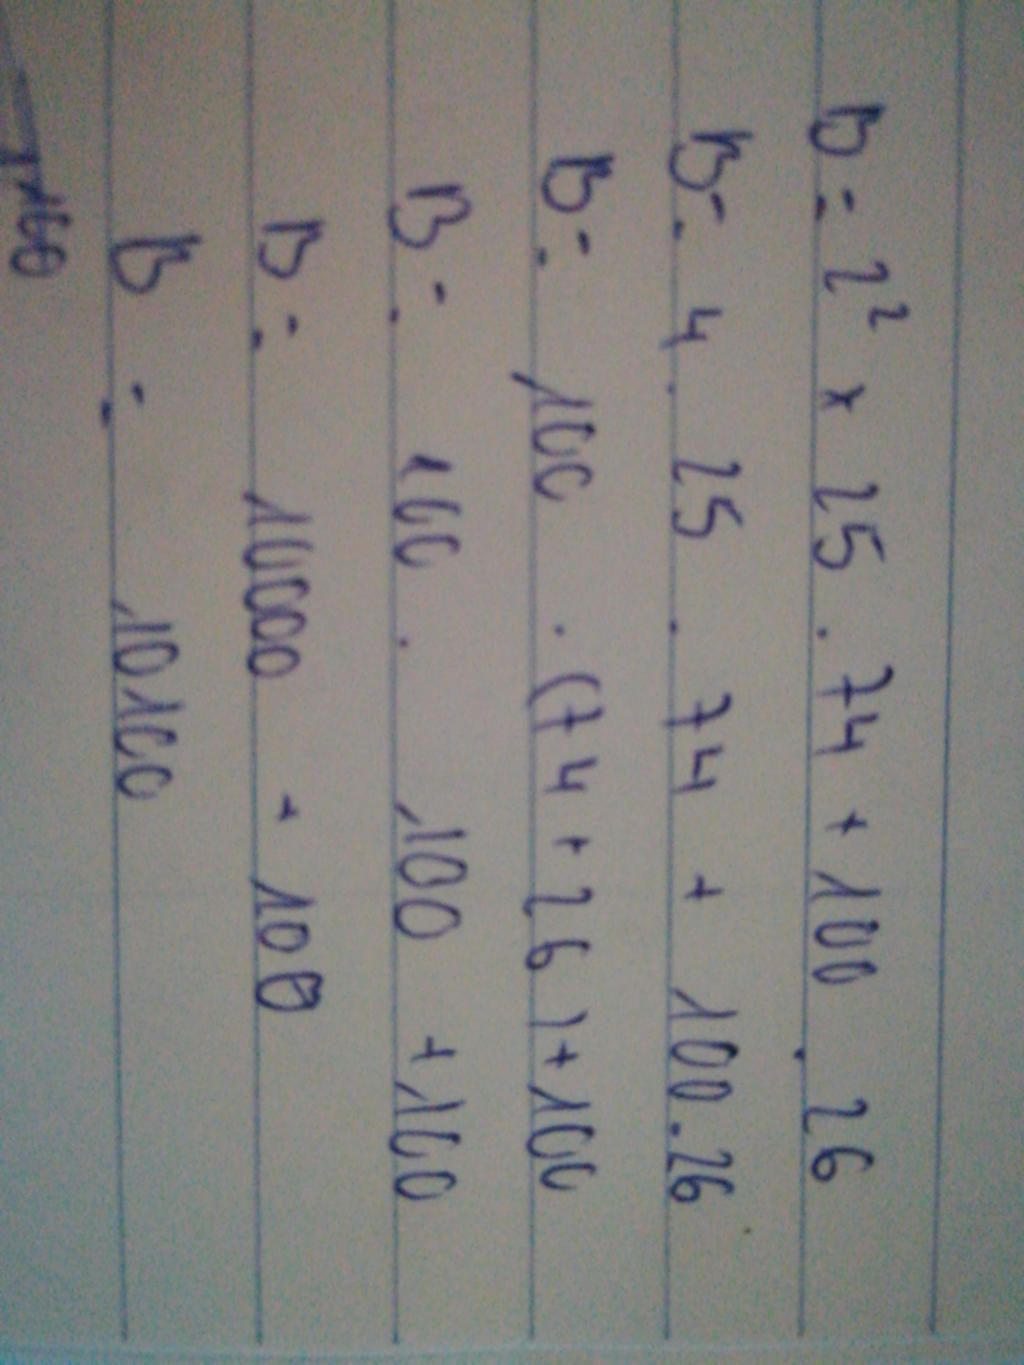 B = 2² x 25 . 74 + 100 . 26
B = 4 . 25 . 74 + 100 . 26
B = 100 . (74 + 26) + 100
B = 100 . 100 + 100
B = 10000 + 100
B = 10100